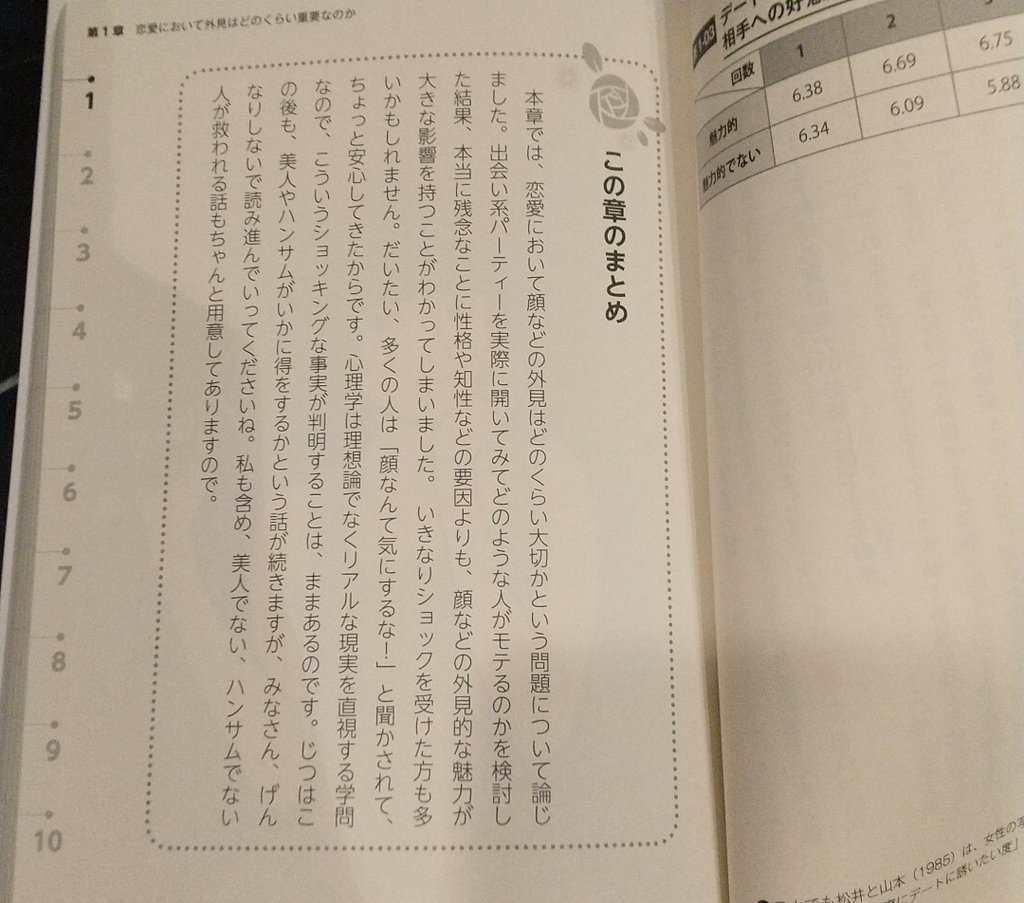 第1章 恋愛において外見はどのくらい重要なのか
この章のまとめ
本章では、恋愛において顔などの外見はどのくらい大切かという問題について論じ
ました。出会い系パーティーを実際に開いてみてどのような人がモテるのかを検討し
た結果、本当に残念なことに性格や知性などの要因よりも、顔などの外見的な魅力が
大きな影響を持つことがわかってしまいました。いきなりショックを受けた方も多
いかもしれません。だいたい、多くの人は「顔なんて気にするな！」と聞かされて、
ちょっと安心してきたからです。心理学は理想論でなくリアルな現実を直視する学問
なので、こういうショッキングな事実が判明することは、ままあるのです。じつはこ
の後も、美人やハンサムがいかに得をするかという話が続きますが、みなさん、げん
なりしないで読み進んでいってくださいね。私も含め、美人でない、ハンサムでない
人が救われる話もちゃんと用意してありますので。
1
2
3
4
5
6
7
8
9
10
デート
相手への好意
回数 1 2
魅力的 6.38 6.69 6.75
魅力的でない 6.34 6.09 5.88
松井と山本（1985）は、女性の
にデートに誘いたい度」